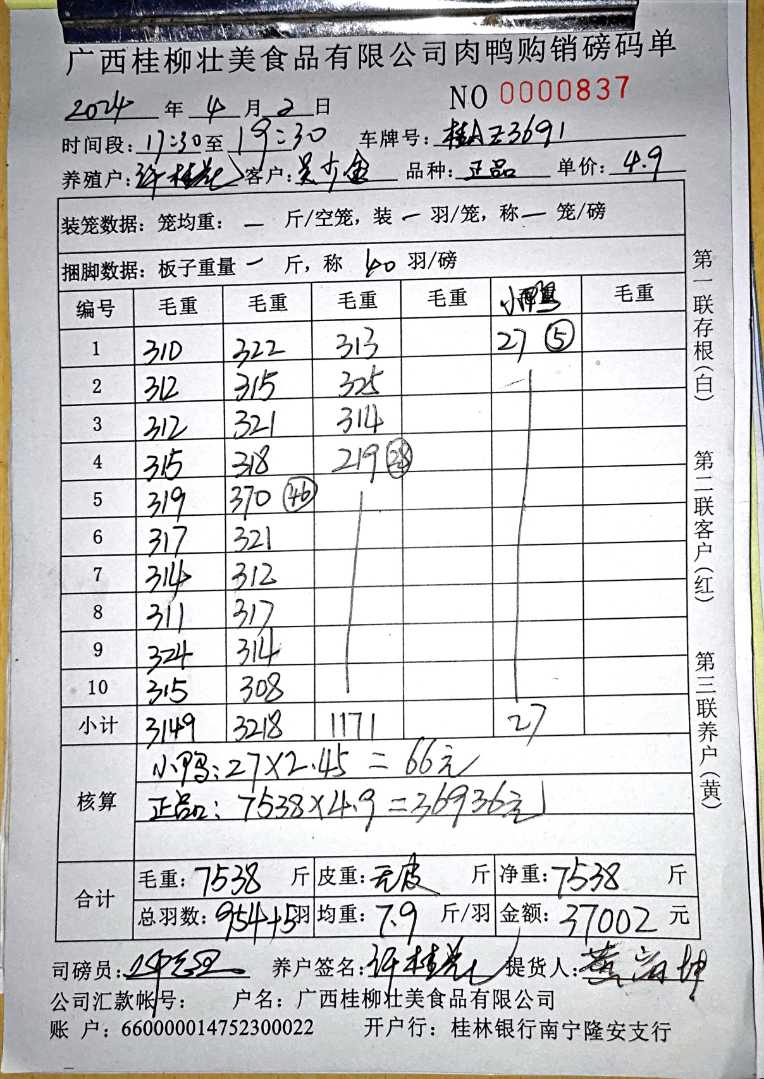 广西桂柳壮美食品有限公司肉鸭购销磅码单
2024 年 4 月 2 日 NO 0000837
时间段: 17:30 至 19:30 车牌号: 桂AZ3691
养殖户: 许桂 客户: 吴少金 品种: 正品 单价: 4.9
装笼数据: 笼均重: — 斤/空笼, 装 — 羽/笼, 称 — 笼/磅
捆脚数据: 板子重量 — 斤, 称 40 羽/磅
编号 毛重 毛重 毛重 毛重 小鸭 毛重
1 310 322 313 27 ⑤
2 312 315 325
3 312 321 314
4 315 318 219 (28)
5 319 370 (46)
6 317 321
7 314 312
8 311 317
9 324 314
10 315 308
小计 3149 3218 1171 27
核算 小鸭: 27×2.45 = 66元
正品: 7538×4.9 = 36936元
合计 毛重: 7538 斤 皮重: 无皮 斤 净重: 7538 斤
总羽数: 954+5 羽 均重: 7.9 斤/羽 金额: 37002 元
司磅员: 养户签名: 许桂 提货人: 黄 坤
公司汇款帐号: 户名: 广西桂柳壮美食品有限公司
账 户: 660000014752300022 开户行: 桂林银行南宁隆安支行
第一联存根(白)
第二联客户(红)
第三联养户(黄)